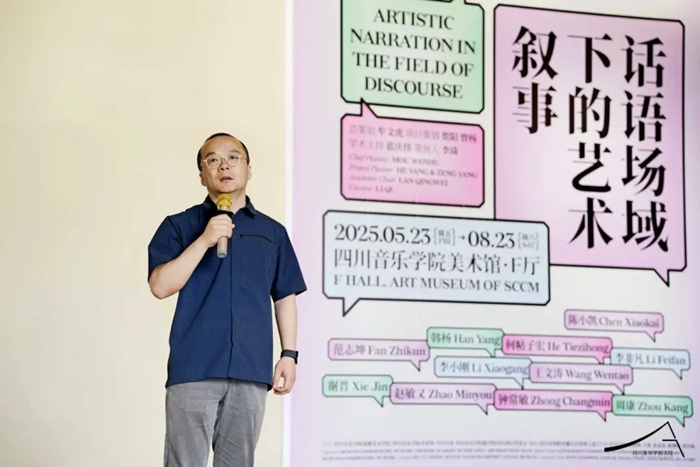 ARTISTIC
NARRATION IN
THE FIELD OF
DISCOURSE
话语场域
下的艺术
叙事
总策划 牟文虎 项目策划 贺阳 曾杨
学术主持 蓝庆伟 策展人 李琦
Chief Planner MOU WENHU
Project Planner HE YANG & ZENG YANG
Academic Chair LAN QINGWEI
Curator LI QI
2025.05.23 [周五 FRI] → 08.23 [周六 SAT]
四川音乐学院美术馆·F厅
F HALL, ART MUSEUM OF SCCM
陈小凯 Chen Xiaokai
韩杨 Han Yang
何帖子宏 He Tiezihong
范志坤 Fan Zhikun
李小刚 Li Xiaogang
李非凡 Li Feifan
王文涛 Wang Wentao
谢晋 Xie Jin
赵敏又 Zhao Minyou
钟常敏 Zhong Changmin
周康 Zhou Kang